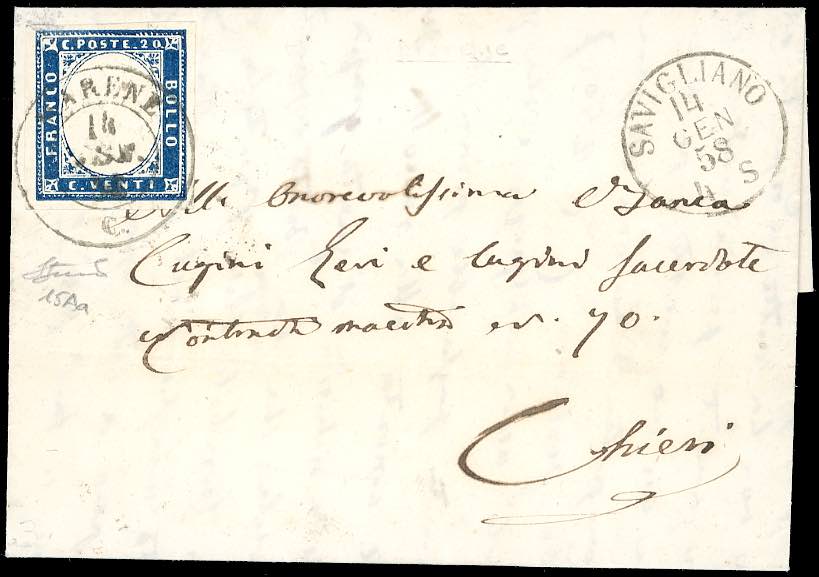 C. POSTE. 20.
FRANCO
BOLLO
C. VENTI
ARENE
14
C.
SAVIGLIANO
14
GEN
58
S
15Aa
Onorevolissima Banca
Cugini e Cugini Sacerdote
Contrada maestra N. 70.
Chieri